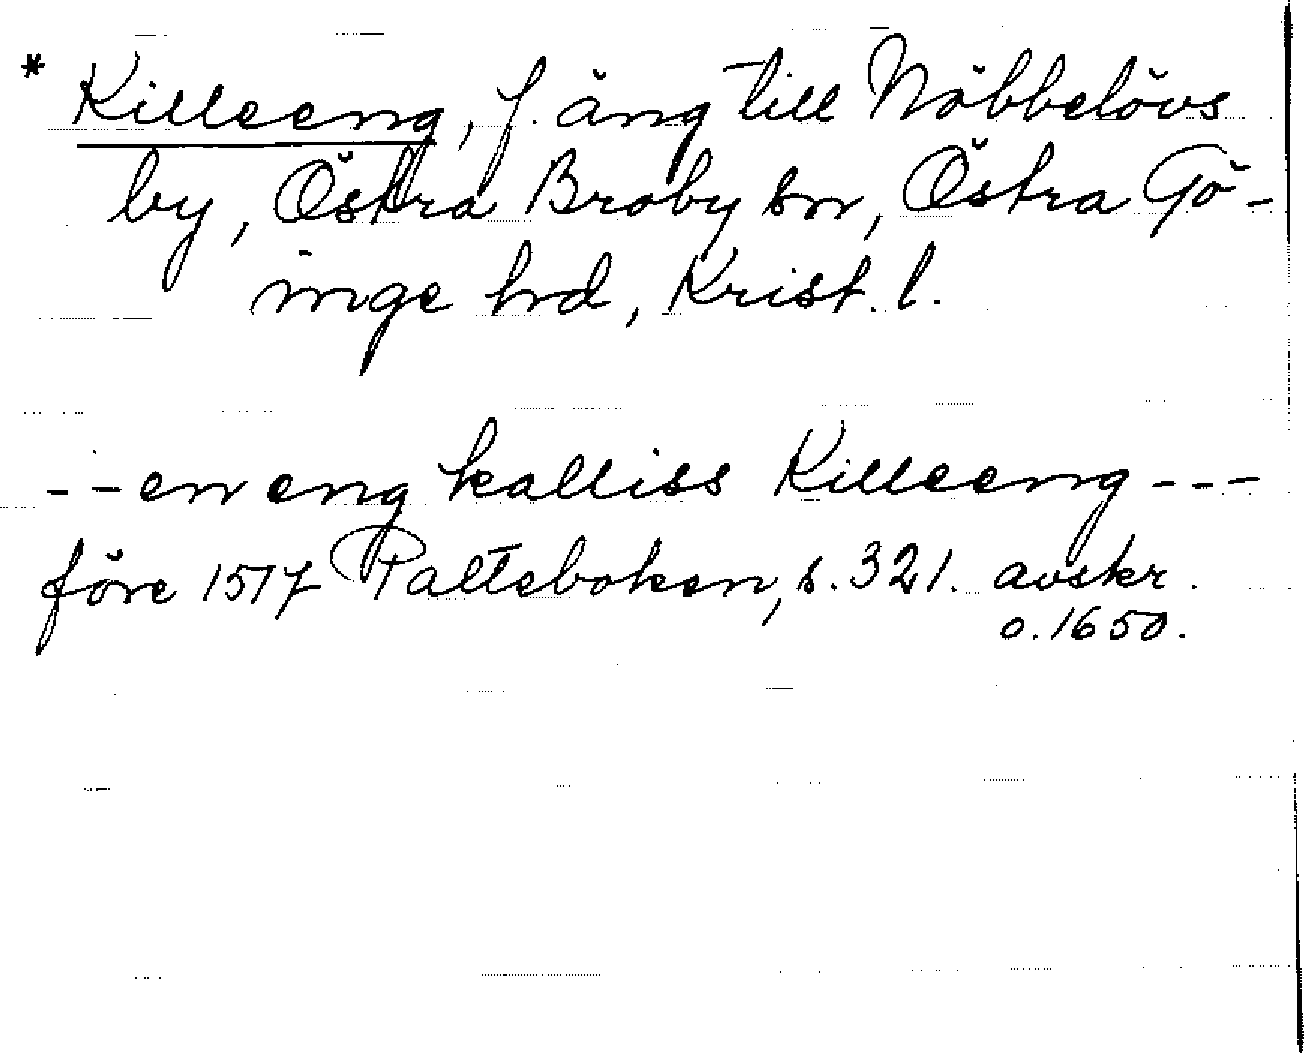 * Killeeng, f. äng till Nöbbelövs
by, Östra Broby sn, Östra Gö-
inge hd, Krist. l.
- - en eng kalliss Killeeng - - -
före 1517 Palteboken, s. 321. avskr.
o. 1650.